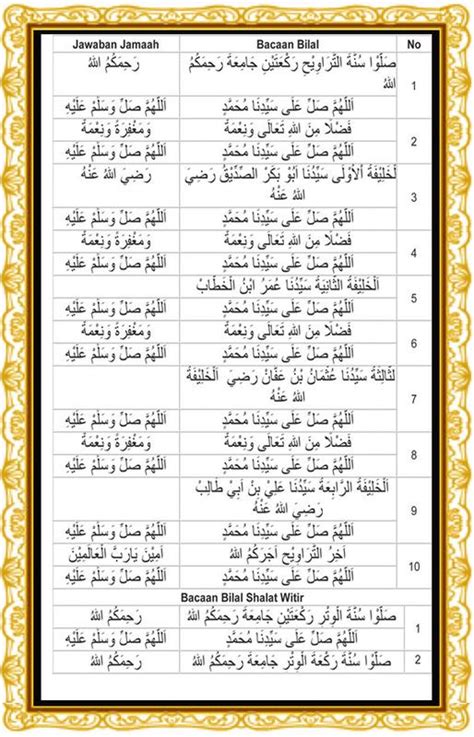 No Bacaan Bilal Jawaban Jamaah
1 صَلُّوْا سُنَّةَ التَّرَاوِيْحِ رَكْعَتَيْنِ جَامِعَةً رَحِمَكُمُ رَحِمَكُمُ اللهُ
اللهُ
اَللّٰهُمَّ صَلِّ عَلَى سَيِّدِنَا مُحَمَّدٍ اَللّٰهُمَّ صَلِّ وَسَلِّمْ عَلَيْهِ
2 فَضْلًا مِنَ اللهِ تَعَالَى وَنِعْمَةً وَمَغْفِرَةً وَنِعْمَةً
اَللّٰهُمَّ صَلِّ عَلَى سَيِّدِنَا مُحَمَّدٍ اَللّٰهُمَّ صَلِّ وَسَلِّمْ عَلَيْهِ
3 لْخَلِيْفَةُ الْأُوْلَى سَيِّدُنَا أَبُوْ بَكَرْ الصِّدِّيْق رَضِيَ رَضِيَ اللهُ عَنْهُ
اللهُ عَنْهُ
اَللّٰهُمَّ صَلِّ عَلَى سَيِّدِنَا مُحَمَّدٍ اَللّٰهُمَّ صَلِّ وَسَلِّمْ عَلَيْهِ
4 فَضْلًا مِنَ اللهِ تَعَالَى وَنِعْمَةً وَمَغْفِرَةً وَنِعْمَةً
اَللّٰهُمَّ صَلِّ عَلَى سَيِّدِنَا مُحَمَّدٍ اَللّٰهُمَّ صَلِّ وَسَلِّمْ عَلَيْهِ
5 اَلْخَلِيْفَةُ الثَّانِيَةُ سَيِّدُنَا عُمَرُ ابْنُ الْخَطَّابْ
اَللّٰهُمَّ صَلِّ عَلَى سَيِّدِنَا مُحَمَّدٍ اَللّٰهُمَّ صَلِّ وَسَلِّمْ عَلَيْهِ
6 فَضْلًا مِنَ اللهِ تَعَالَى وَنِعْمَةً وَمَغْفِرَةً وَنِعْمَةً
اَللّٰهُمَّ صَلِّ عَلَى سَيِّدِنَا مُحَمَّدٍ اَللّٰهُمَّ صَلِّ وَسَلِّمْ عَلَيْهِ
7 لثَالِثَةُ سَيِّدُنَا عُثْمَانُ بْنُ عَفَّانْ رَضِيَ اَلْخَلِيْفَةُ
اللهُ عَنْهُ
اَللّٰهُمَّ صَلِّ عَلَى سَيِّدِنَا مُحَمَّدٍ اَللّٰهُمَّ صَلِّ وَسَلِّمْ عَلَيْهِ
8 فَضْلًا مِنَ اللهِ تَعَالَى وَنِعْمَةً وَمَغْفِرَةً وَنِعْمَةً
اَللّٰهُمَّ صَلِّ عَلَى سَيِّدِنَا مُحَمَّدٍ اَللّٰهُمَّ صَلِّ وَسَلِّمْ عَلَيْهِ
9 اَلْخَلِيْفَةُ الرَّابِعَةُ سَيِّدُنَا عَلِيْ بنْ اَبِيْ طَالِبْ
رَضِيَ اللهُ عَنْهُ
اَللّٰهُمَّ صَلِّ عَلَى سَيِّدِنَا مُحَمَّدٍ اَللّٰهُمَّ صَلِّ وَسَلِّمْ عَلَيْهِ
10 اَخِرُ التَّرَاوِيْحِ اَجَرَكُمُ اللهُ اَمِيْنَ يَارَبَّ الْعَالَمِيْنَ
اَللّٰهُمَّ صَلِّ عَلَى سَيِّدِنَا مُحَمَّدٍ اَللّٰهُمَّ صَلِّ وَسَلِّمْ عَلَيْهِ
Bacaan Bilal Shalat Witir
1 صَلُّوْا سُنَّةَ الْوِتْرِ رَكْعَتَيْنِ جَامِعَةً رَحِمَكُمُ اللهُ رَحِمَكُمُ اللهُ
اَللّٰهُمَّ صَلِّ عَلَى سَيِّدِنَا مُحَمَّدٍ اَللّٰهُمَّ صَلِّ وَسَلِّمْ عَلَيْهِ
2 صَلُّوْا سُنَّةَ رَكْعَةَ الْوِتْرِ جَامِعَةً رَحِمَكُمُ اللهُ رَحِمَكُمُ اللهُ